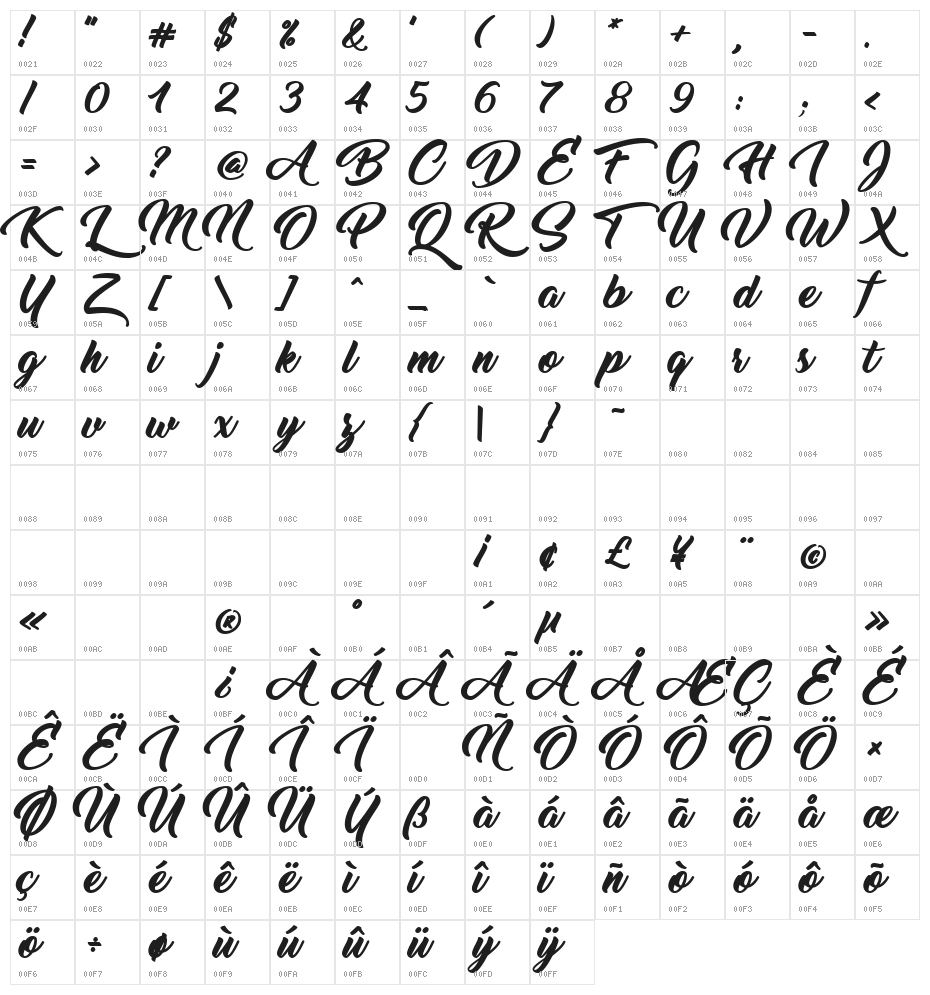 ! " # $ % & ' ( ) * + , - .
0021 0022 0023 0024 0025 0026 0027 0028 0029 002A 002B 002C 002D 002E
/ 0 1 2 3 4 5 6 7 8 9 : ; <
002F 0030 0031 0032 0033 0034 0035 0036 0037 0038 0039 003A 003B 003C
= > ? @ A B C D E F G H I J
003D 003E 003F 0040 0041 0042 0043 0044 0045 0046 0047 0048 0049 004A
K L M N O P Q R S T U V W X
004B 004C 004D 004E 004F 0050 0051 0052 0053 0054 0055 0056 0057 0058
Y Z [ \ ] ^ _ ` a b c d e f
0059 005A 005B 005C 005D 005E 005F 0060 0061 0062 0063 0064 0065 0066
g h i j k l m n o p q r s t
0067 0068 0069 006A 006B 006C 006D 006E 006F 0070 0071 0072 0073 0074
u v w x y z { | } ~
0075 0076 0077 0078 0079 007A 007B 007C 007D 007E 0080 0082 0084 0085
0088 0089 008A 008B 008C 008E 0090 0091 0092 0093 0094 0095 0096 0097
¡ ¢ £ ¥ ¨ ©
0098 0099 009A 009B 009C 009E 009F 00A1 00A2 00A3 00A5 00A8 00A9 00AA
« ® ° ´ µ »
00AB 00AC 00AD 00AE 00B0 00B1 00B4 00B5 00B7 00B8 00B9 00BA 00BB
¿ À Á Â Ã Ä Å Æ Ç È É
00BC 00BD 00BE 00BF 00C0 00C1 00C2 00C3 00C4 00C5 00C6 00C7 00C8 00C9
Ê Ë Ì Í Î Ï Ñ Ò Ó Ô Õ Ö ×
00CA 00CB 00CC 00CD 00CE 00CF 00D0 00D1 00D2 00D3 00D4 00D5 00D6 00D7
Ø Ù Ú Û Ü Ý ß à á â ã ä å æ
00D8 00D9 00DA 00DB 00DC 00DD 00DF 00E0 00E1 00E2 00E3 00E4 00E5 00E6
ç è é ê ë ì í î ï ñ ò ó ô õ
00E7 00E8 00E9 00EA 00EB 00EC 00ED 00EE 00EF 00F1 00F2 00F3 00F4 00F5
ö ÷ ø ù ú û ü ý ÿ
00F6 00F7 00F8 00F9 00FA 00FB 00FC 00FD 00FF